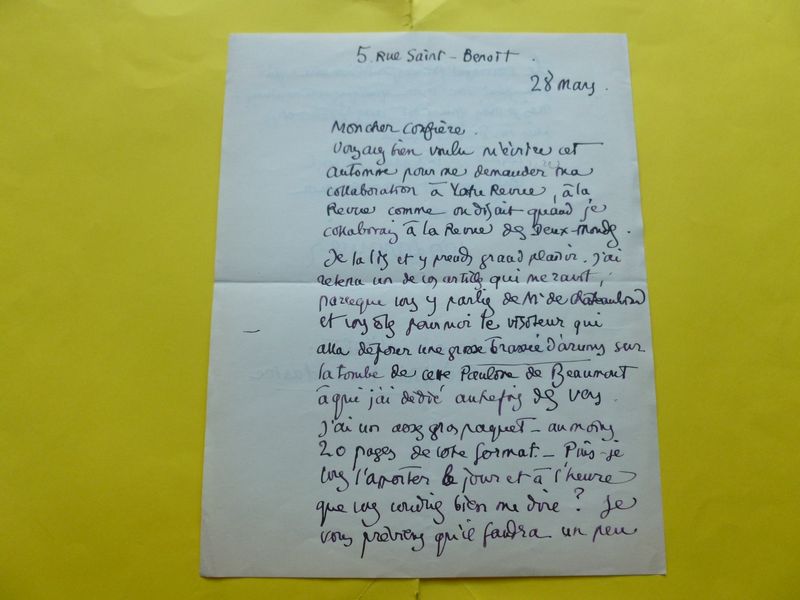 5. Rue Saint-Benoît.
28 mars.
Mon cher confrère.
Vous avez bien voulu m'écrire cet
automne pour me demander ma
collaboration à Votre Revue, à la
Revue comme on disait quand je
collaborais à la Revue des Deux-Mondes.
Je la lis et y prends grand plaisir. J'ai
retenu un de vos articles qui me ravit,
parceque vous y parlez de Mr de Chateaubriand
et vous êtes pour moi le visiteur qui
alla déposer une grosse brassée d'arums sur
la tombe de cette Pauline de Beaumont
à qui j'ai dédié autrefois des vers.
J'ai un assez gros paquet - au moins
20 pages de votre format. - Puis-je
vous l'apporter le jour et à l'heure
que vous voudrez bien me dire ? Je
vous préviens qu'il faudra un peu